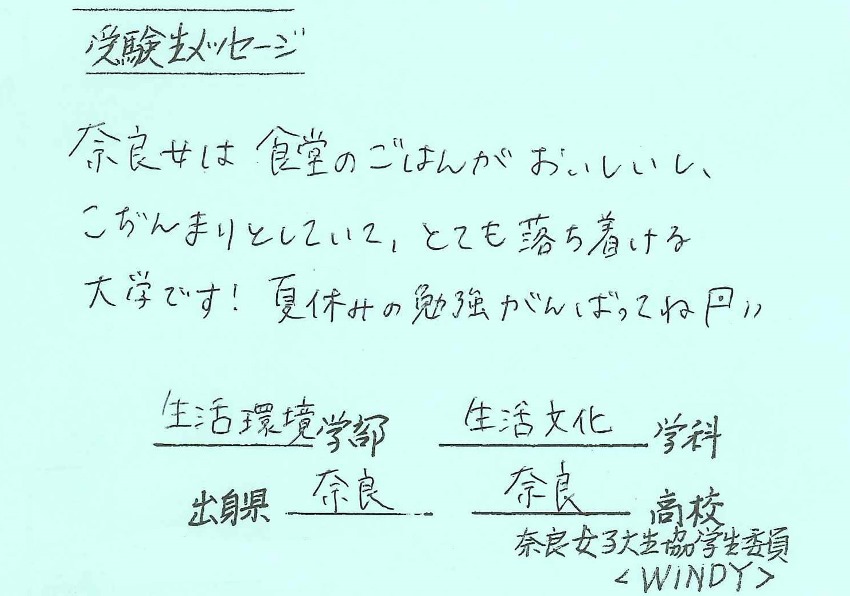 受験生メッセージ
奈良女は食堂のごはんがおいしいし、
こぢんまりとしていて、とても落ち着ける
大学です！夏休みの勉強がんばってね
生活環境学部 生活文化学科
出身県 奈良 奈良高校
奈良女子大生協学生委員
<WINDY>